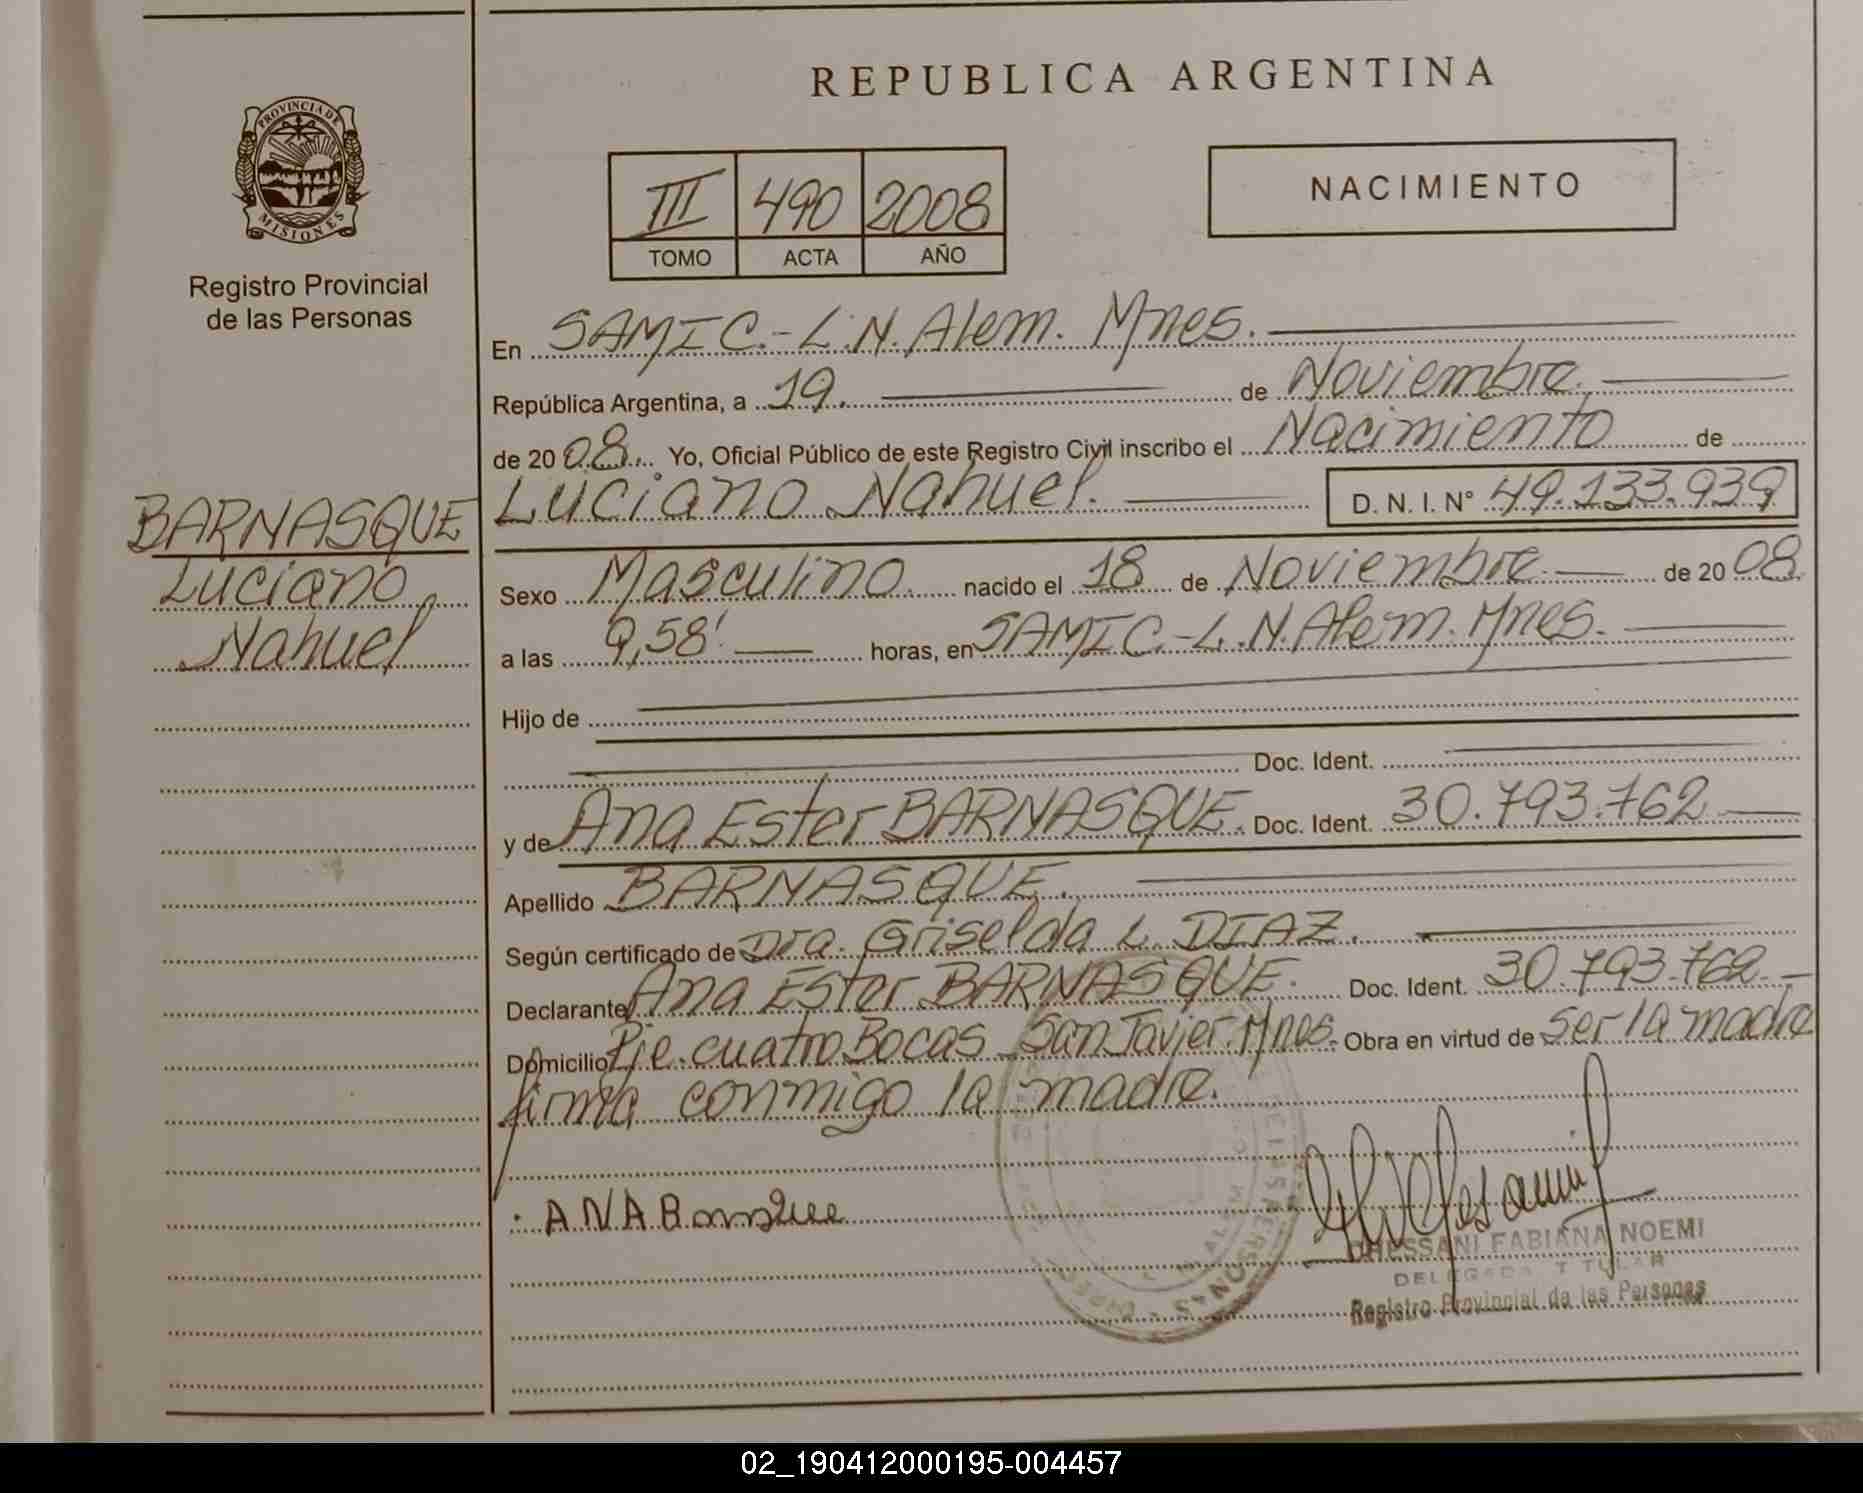 REPUBLICA ARGENTINA
PROVINCIA DE
MISIONES
Registro Provincial
de las Personas
III 490 2008
TOMO ACTA AÑO
NACIMIENTO
En SAMIC.- L.N. Alem. Mnes.
República Argentina, a 19. de Noviembre.
de 2008. Yo, Oficial Público de este Registro Civil inscribo el Nacimiento de
Luciano Nahuel. D. N. I. N° 49.133.939
BARNASQUE
Luciano
Nahuel
Sexo Masculino. nacido el 18 de Noviembre. de 2008.
a las 9,58' horas, en SAMIC.-L.N. Alem. Mnes.
Hijo de
Doc. Ident.
y de Ana Ester BARNASQUE. Doc. Ident. 30.793.762
Apellido BARNASQUE.
Según certificado de Dra. Griselda L. DIAZ.
Declarante Ana Ester BARNASQUE. Doc. Ident. 30.793.762.
Domicilio Pje. cuatro Bocas San Javier. Mnes. Obra en virtud de ser la madre
firma conmigo la madre.
ANA Barnasque
FABIANA NOEMI
DELEGADA TITULAR
Registro Provincial de las Personas
02_190412000195-004457